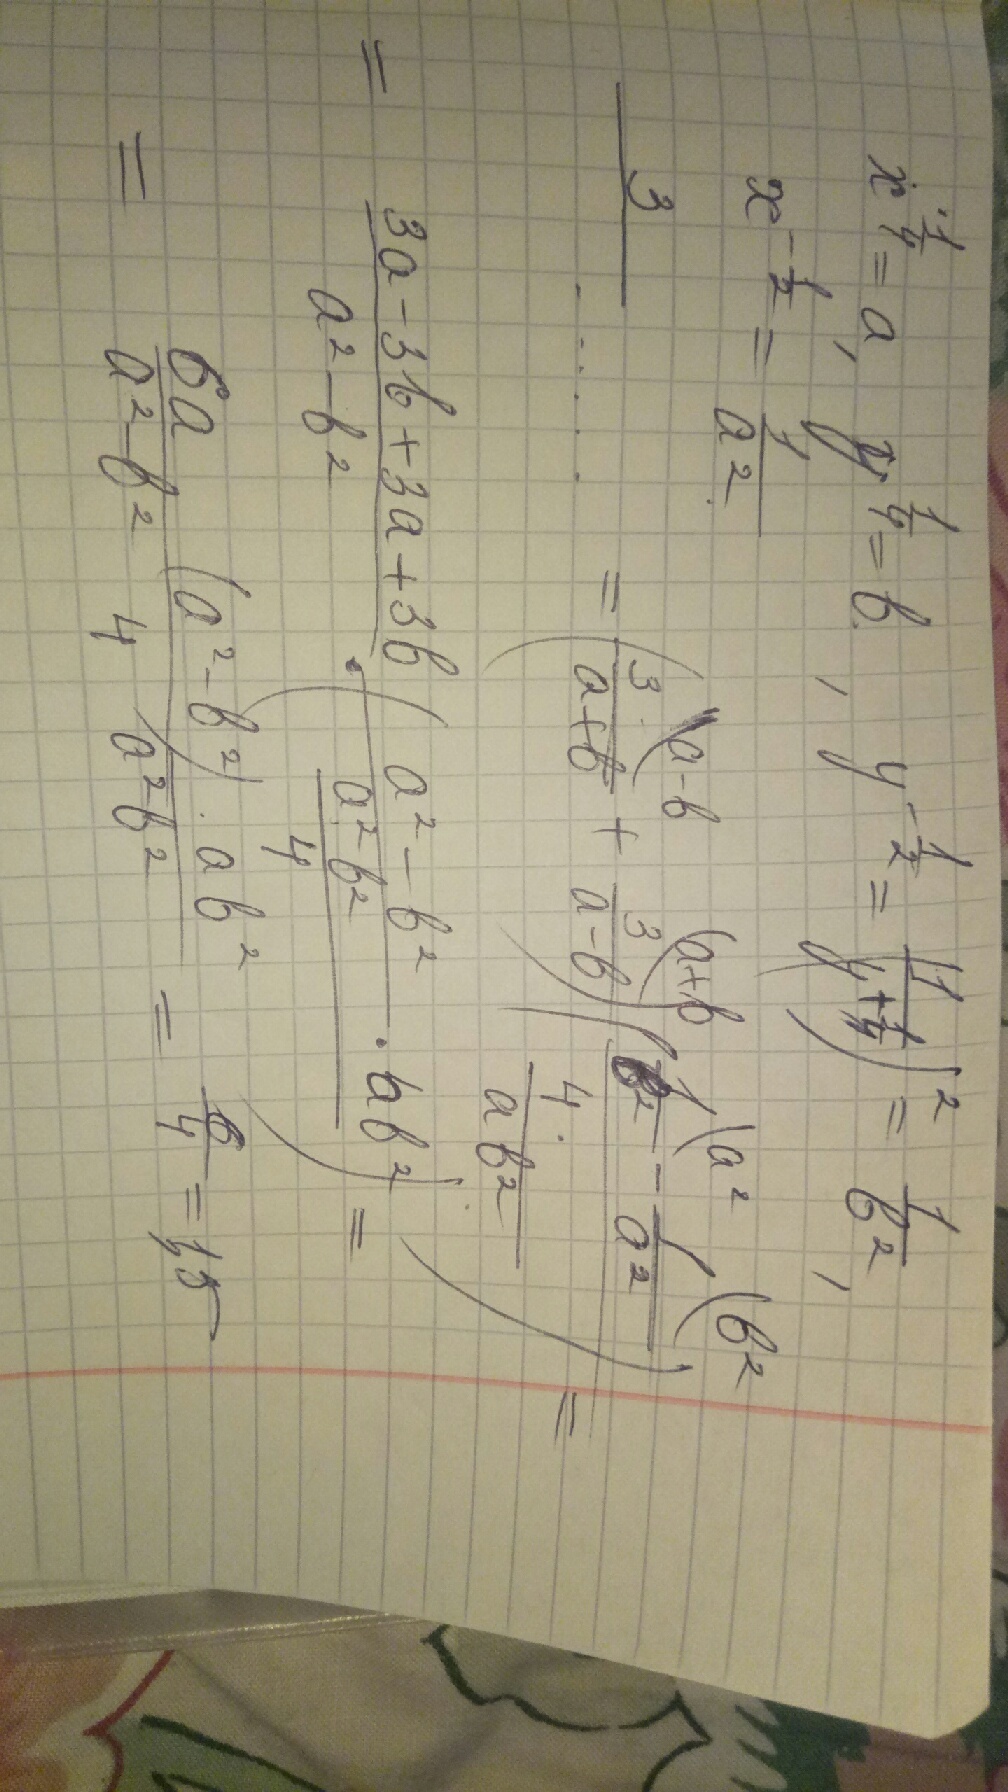 x^{1/4} = a, y^{1/4} = b, y^{-1/2} = 1/(y^{+1/4})^2 = 1/b^2,
x^{-1/2} = 1/a^2
3/ ..... = (3/(a+b) (a-b + 3/(a-b) (a+b) (1/b^2 (a^2 - 1/a^2 (b^2) / (4 · /ab^2) =
= (3a-3b+3a+3b)/(a^2-b^2) · ((a^2-b^2)/(a^2b^2) · ab^2 / 4) =
= 6a/(a^2-b^2) (a^2-b^2) · ab^2 / 4 a^2b^2 = 6/4 = 1,5